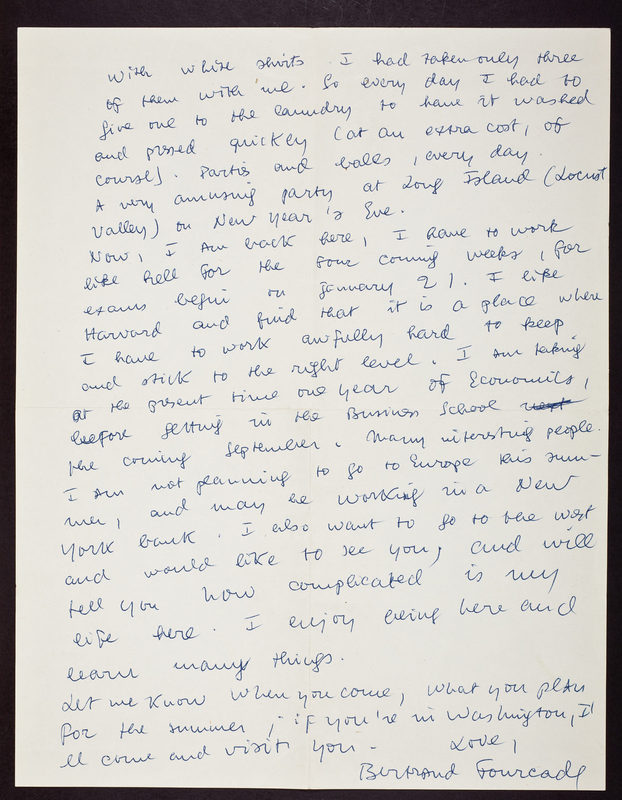 with white shirts I had taken only three
of them with me. So every day I had to
give one to the laundry to have it washed
and pressed quickly (at an extra cost, of
course). Parties and balls, every day.
A very amusing party at Long Island (Locust
Valley) on New Year's Eve.
Now, I am back here, I have to work
like hell for the four coming weeks, for
exams begin on January 21. I like
Harvard and find that it is a place where
I have to work awfully hard to keep
and stick to the right level. I am taking
at the present time one year of Economics,
before getting in the Business School next
the coming September. Many interesting people.
I am not planning to go to Europe this sum-
mer, and may be working in a New
York bank. I also want to go to the west
and would like to see you, and will
tell you how complicated is my
life here. I enjoy being here and
learn many things.
Let me know when you come, what you plan
for the summer, if you're in Washington, I'
ll come and visit you - Love,
Bertrand Fourcade